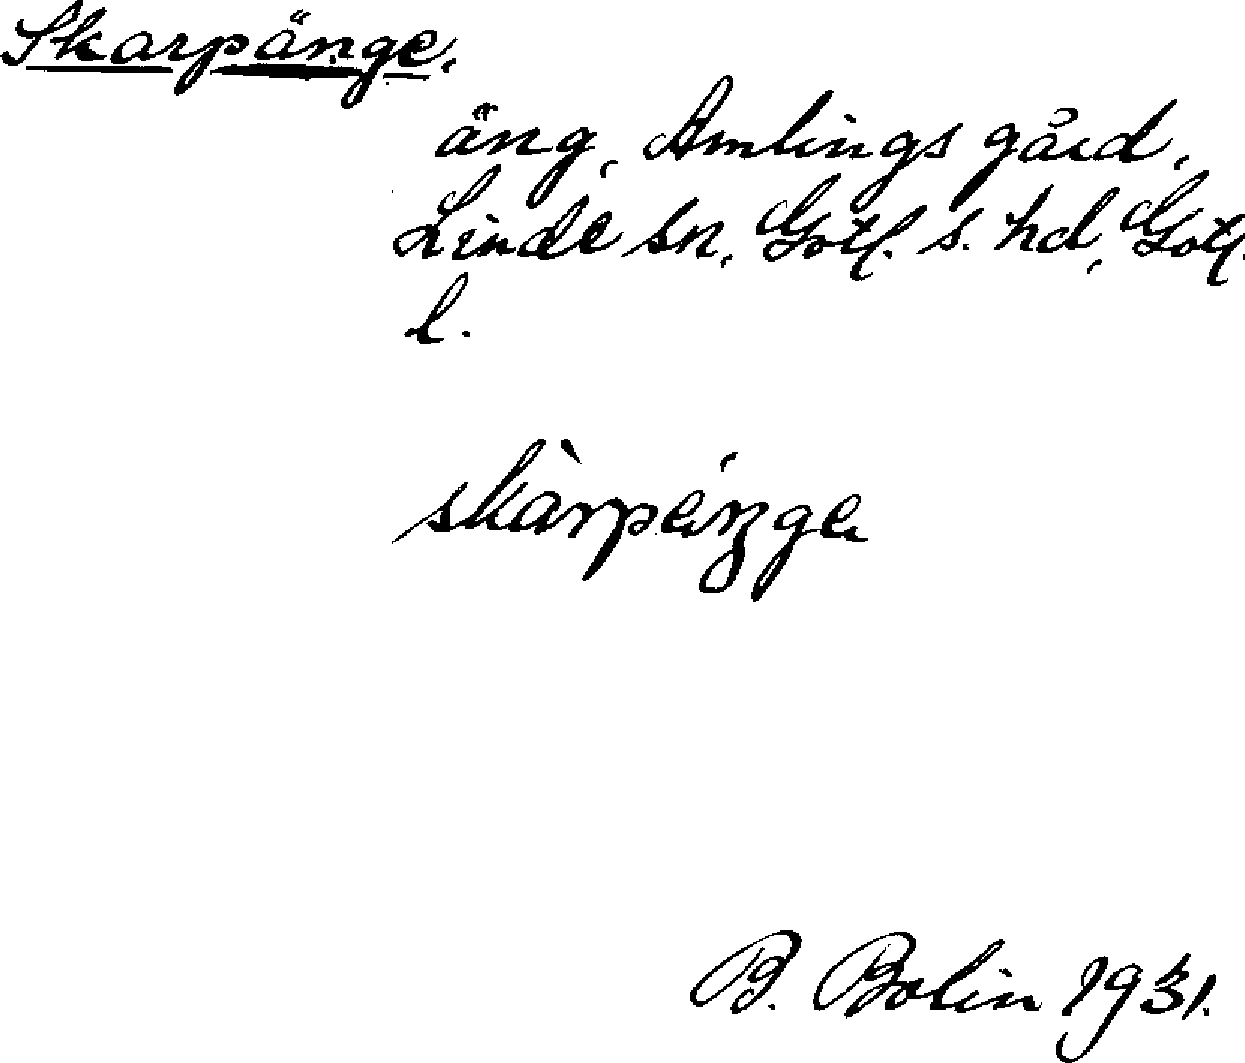 Skarpänge.
äng, Amlings gård,
Linde sn, Gotl. s. hd, Gotl.
l.
skàrpéŋge
B. Bolin 1931.